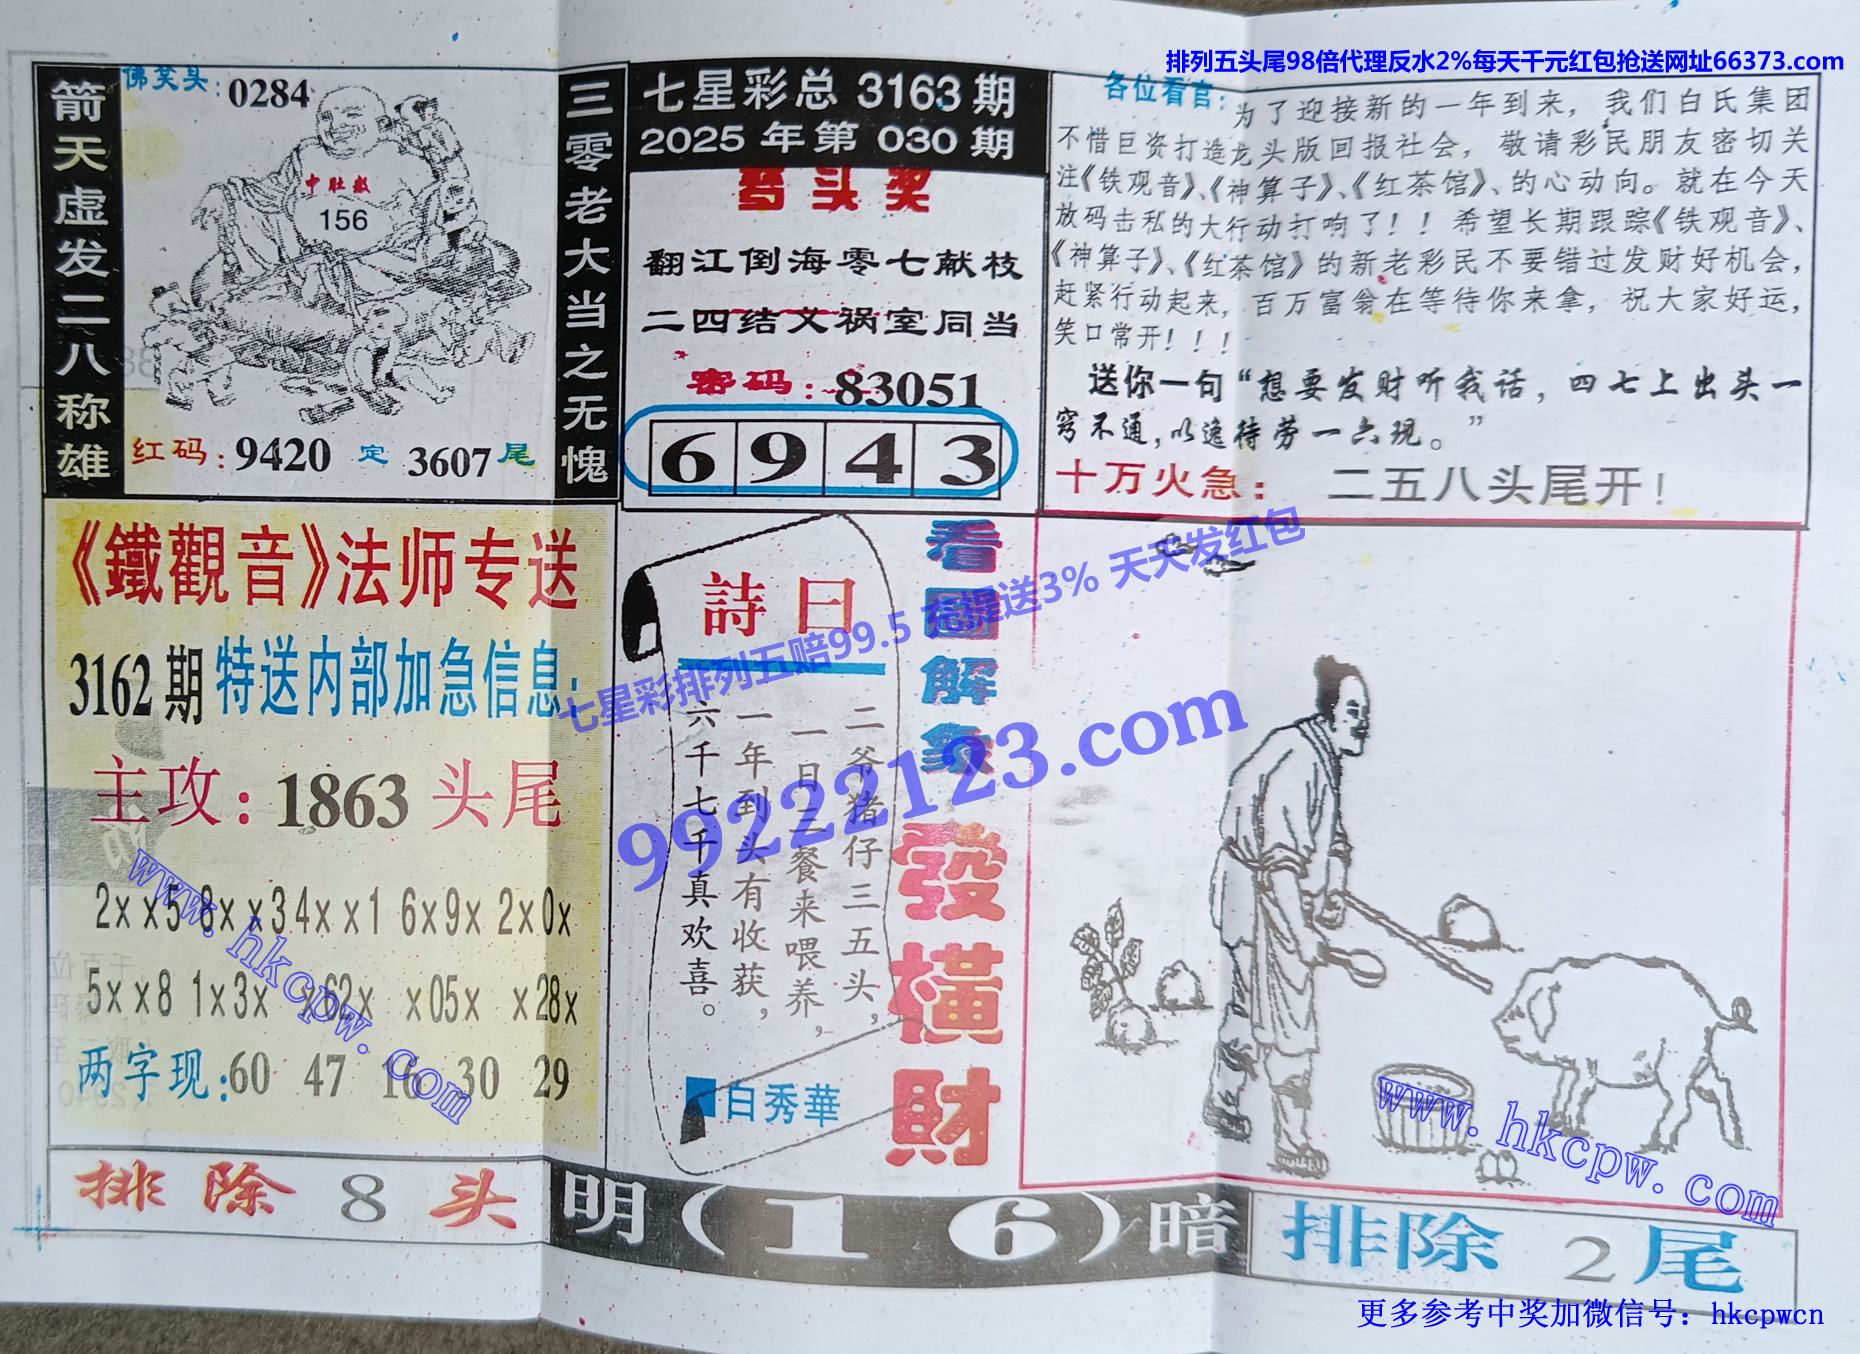 排列五头尾98倍代理反水2%每天千元红包抢送网址66373.com
箭天虚发二八称雄
佛笑头:0284
中肚数
156
红码:9420 定 3607尾
三零老大当之无愧
七星彩总 3163 期
2025 年第 030 期
头奖
翻江倒海零七献枝
二四结义祸室同当
密码:83051
6 9 4 3
各位看官:为了迎接新的一年到来，我们白氏集团
不惜巨资打造龙头版回报社会，敬请彩民朋友密切关
注《铁观音》、《神算子》、《红茶馆》、的心动向。就在今天
放码击私的大行动打响了！！希望长期跟踪《铁观音》、
《神算子》、《红茶馆》的新老彩民不要错过发财好机会，
赶紧行动起来，百万富翁在等待你来拿，祝大家好运，
笑口常开！！！
送你一句“想要发财听我话，四七上出头一
窍不通，以逸待劳一六现。”
十万火急：二五八头尾开！
《鐵觀音》法师专送
3162期 特送内部加急信息:
主攻:1863 头尾
2××5 8××3 4××1 6×9× 2×0×
5××8 1×3× ×62× ×05× ×28×
两字现:60 47 16 30 29
詩曰
二爷猪仔三五头，
一日二餐来喂养，
一年到头有收获，
六千七千真欢喜。
白秀華
看圖解象
發橫財
七星彩排列五赔99.5 充提送3% 天天发红包
99222123.com
www.hkcpw.com
www.hkcpw.com
排除 8 头
明(16)暗
排除 2 尾
更多参考中奖加微信号：hkcpwcn